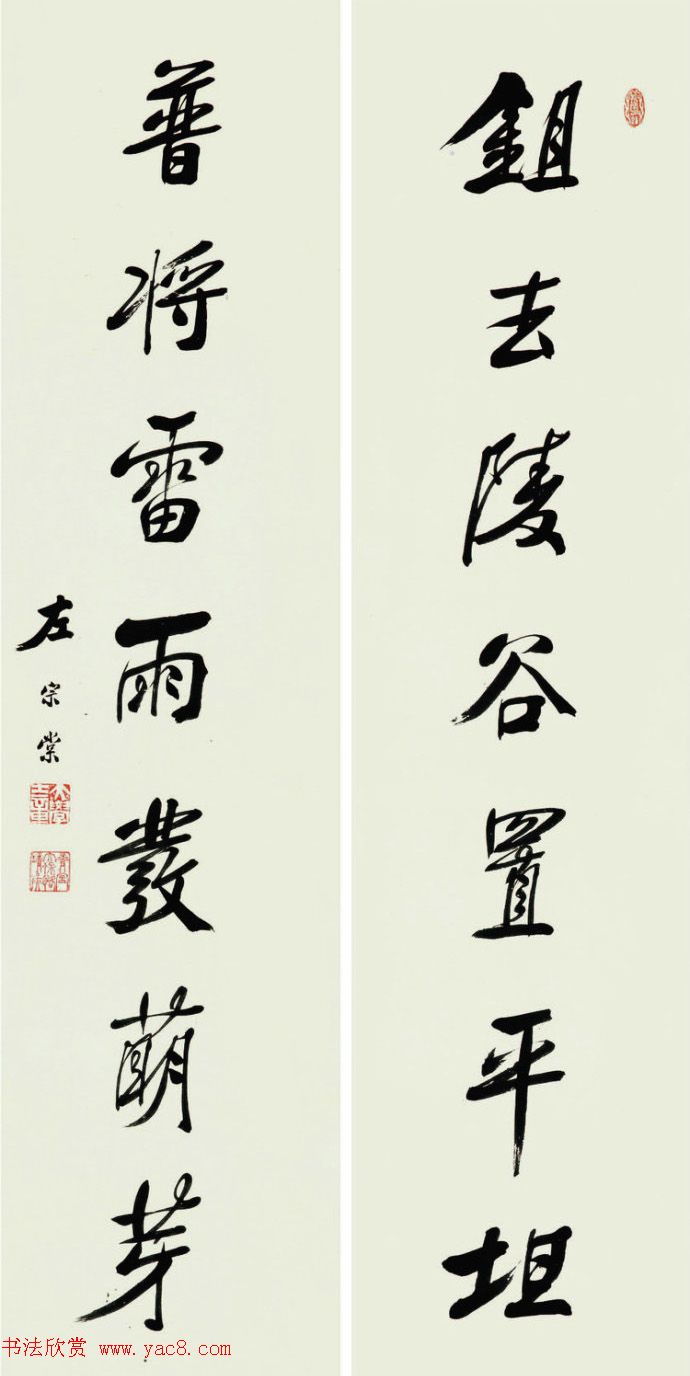 鉏去陵谷置平坦
普将雷雨發萌芽
左宗棠
大學士章
书法欣赏 www.yac8.com